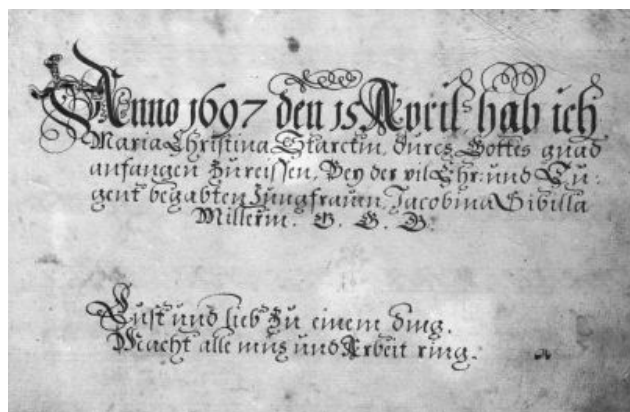 Anno 1697 den 15 April hab ich
Maria Christina Starckin, durch Gottes gnad
anfangen Zu reissen, Bey der vil Ehr: und Tu:
gent begabten Jungfrauen, Jacobina Sibilla
Millerin. G. G. G.
Lust und lieb Zu einem ding.
Macht alle müh und Arbeit ring.